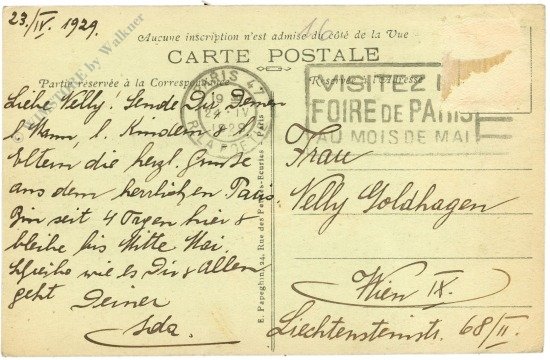 23./IV. 1929.
16
Aucune inscription n'est admise du côté de la Vue
CARTE POSTALE
Partie réservée à la Correspondance
Réservée à l'Adresse
by Walkner
PARIS 47
VISITEZ
FOIRE DE PARIS
AU MOIS DE MAI
Liebe Nelly! Sende Dir, Deinem
l. Mann, l. Kindern &
Eltern die herzl. Grüsse
aus dem herrlichen Paris.
Bin seit 4 Tagen hier &
bleibe bis Mitte Mai.
Schreibe wie es Dir & Allen
geht Deiner
Ida.
E. Papeghin, 24, Rue des Petites-Ecuries - Paris
Frau
Nelly Goldhagen
Wien IX.
Liechtensteinstr. 68/II.